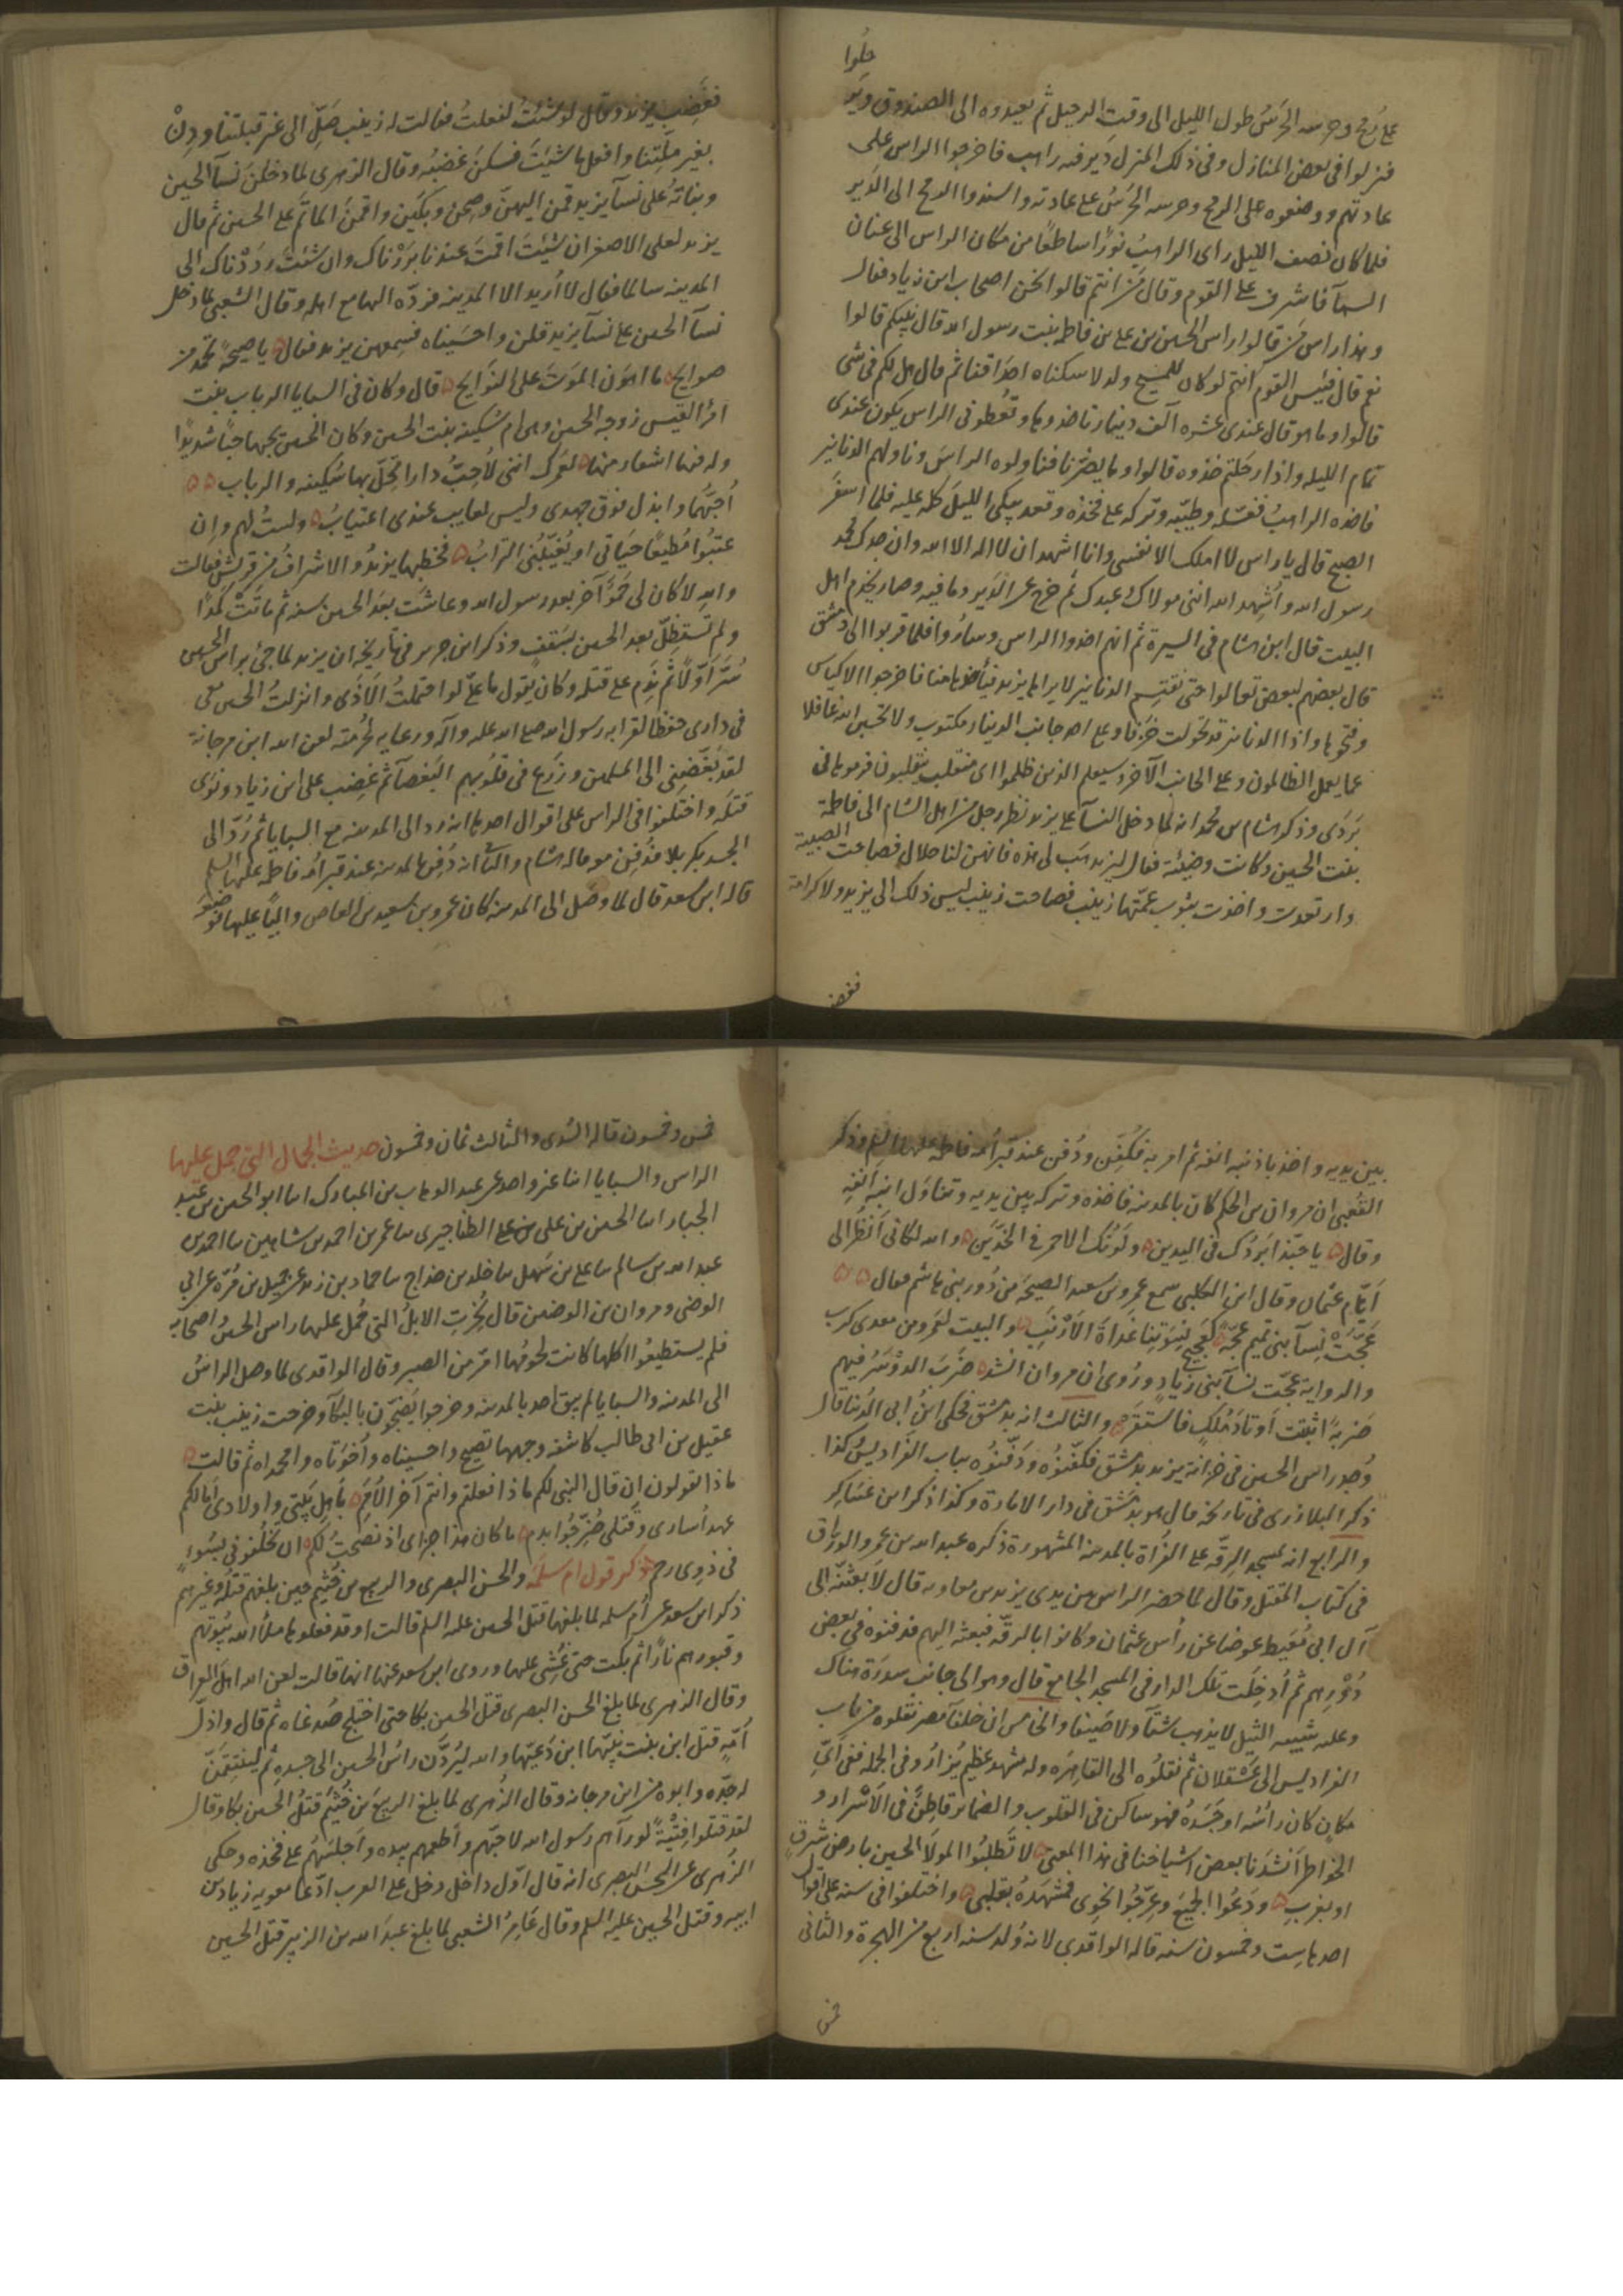 حلوا
على رمح وحرسه الحرس طول الليل الى وقت الرحيل ثم يعيدوه الى الصندوق ويرحلوا
فنزلوا فى بعض المنازل وفى ذلك المنزل دير فيه راهب فاخرجوا الراس على
عادتهم ووضعوه على الرمح وحرسه الحرس على عادته واسندوا الرمح الى الدير
فلما كان نصف الليل راى الراهب نورًا ساطعًا من مكان الراس الى عنان
السمآ فاشرف على القوم وقال من انتم قالوا نحن اصحاب ابن زياد فقال
وهذا راس من قالوا راس الحسين بن على بن فاطمه بنت رسول الله قال نبيكم قالوا
نعم قال فبئس القوم انتم لو كان للمسيح ولد لاسكناه احداقنا ثم قال هل لكم فى شى
قالوا وما هو قال عندى عشره آلف دينار تاخذوها وتعطونى الراس يكون عندى
تمام الليله واذا رحلتم خذوه قالوا وما يضرنا فناولوه الراس وناولهم الدنانير
فاخذه الراهب فغسّله وطيّبه وتركه على فخذه وقعد يبكى الليل كله عليه فلما اسفر
الصبح قال يا راس لا املك الا نفسى وانا اشهد ان لا اله الا الله وان جدك محمد
رسول الله واشهد الله اننى مولاك وعبدك ثم خرج عن الدير وما فيه وصار يخدم اهل
البيت قال ابن هشام فى السيرة ثم انهم اخذوا الراس وساروا فلما قربوا الى دمشق
قال بعضهم لبعض تعالوا حتى نقتسم الدنانير لا يراها يزيد فيأخذها منا فاخرجوا الاكياس
وفتحوها واذا الدنانير قد تحولت خزفا وعلى احد جانب الدينار مكتوب ولا تحسبن الله غافلا
عما يعمل الظالمون وعلى الجانب الآخر وسيعلم الذين ظلموا اى منقلب ينقلبون فرموها فى
بَرَدَى وذكر هشام بن محمد انه لما دخل النسآ على يزيد نظر رجل من اهل الشام الى فاطمة
بنت الحسين وكانت وضيئة فقال ليزيد هب لى هذه فانهن لنا حلال فصاحت الصبية
وارتعدت واخذت بثوب عمتها زينب فصاحت زينب ليس ذلك الى يزيد ولا كرامة
فغضب
فغضب يزيد وقال لو شئتُ لفعلتُ فقالت له زينب صَلِّ الى غير قبلتنا ودِنْ
بغير ملّتنا وافعل ما شئتَ فسكن غضبُه وقال الزهرى لما دخلن نسآ الحسين
وبناتهُ على نسآ يزيد قمن اليهنّ وصِحن وبكين واقمنَ الماتم على الحسين ثم قال
يزيد لعلى الاصغر ان شئتَ اقمتَ عندنا بَرَرْناك وان شئت رددْناك الى
المدينه سالما فقال لا أريد الا المدينه فردّه اليها مع اهله وقال الشعبى لما دخل
نسآ الحسين على نسآ يزيد قلن واحسيناه فسمعهن يزيد فقال يا صيحة تحمد من
صوايح ما اهون الموتَ على النوايح قال وكان فى السبايا الرباب بنت
امرؤ القيس زوجه الحسين وهى ام سُكينه بنت الحسين وكان الحسين يحبها حبًا شديدًا
وله فيها اشعار منها لعمرك اننى لأحِبُّ دارا تحلّ بها سُكينه والرباب
أحبّهُما وابذل فوق جهدى وليس لعايب عندى اعتيابُ ولستُ لهم وان
عتبُوا مُطيعًا حياتى او يُغيّبُنى الترابُ فخطبها يزيدُ والاشرافُ من قريش فقالت
والله لا كان لى حَموًا آخر بعد رسول الله وعاشت بعد الحسين سنه ثم ماتتْ كمدًا
ولم تستظلّ بعد الحسين بسَقفٍ وذكر ابن جرير فى تاريخه ان يزيد لما جئ براس الحسين
سُرّ اَوّلًا ثم ندِم على قتله وكان يقول ما علىّ لو احتملتُ الاذى وانزلتُ الحسين معى
فى دارى حفظا لقرابه رسول الله صلى الله عليه وآله ورعايه لحُرمته لعن الله ابن مرجانة
لقد بَغّضنى الى المسلمين وزَرَع فى قلُوبهم البَغضآ ثم غضِب على ابن زياد ونوَى
قتله واختلفوا فى الراس على اقوال احدها انه رد الى المدينه مع السبايا ثم رُدّ الى
الجسد بكربلا فدُفِن معه قاله هشام والثانى انه دُفِن بالمدينه عند قبر امّه فاطمه عليها السلم
قاله ابن سعد قال لما وصَل الى المدينه كان عمرو بن سعيد بن العاص واليًا عليها فوضعه
بين يديه واخذ بأرنبه انفه ثم امر به فكُفِّن ودُفن عند قبر اُمّه فاطمه عليها السلم وذكر
الشعبى ان مروان بن الحكم كان بالمدينه فاخذه وتركه بين يديه وتناوَل ارنبه انفه
وقال يا حبّذا بَردُك فى اليدين ولَونُك الاحمر فى الخدّين والله لكانى أنظُر الى
اَيّام عثمان وقال ابن الكلبى سمع عمرو بن سعيد الصيحَه من دُور بنى هاشم فقال
عجّتْ نسآ بنى تميم عجّةً كعجيج نِسوتِنا غَداةَ الأرْنَبِ والبيت لعمرو بن معدى كرب
والرواية عجّت نسآ بنى زيادٍ ورُوى ان مروان انشد ضَرَبَ الدوْسَرُ فيهم
ضَربةً اثبتت أوتادَ مُلكٍ فاستقرّ والثالث انه بدمشق فحكى ابنُ ابى الدُنيا قال
وُجد راس الحسين فى خزانة يزيد بدمشق فكفّنُوه ودَفنُوه بباب الفراديس وكذا
ذكر البلاذرى فى تاريخه قال هو بدمشق فى دار الامارة وكذا ذكر ابن عساكر
والرابع انه بمسجد الرقّه على الفُراة بالمدينه المشهورة ذكره عبد الله بن عمرو الوراق
فى كتاب المقتل وقال لما حضر الراس بين يدى يزيد بن معاويه قال لَابعثنّه الى
آل ابى مُعَيط عوضا عن رأس عثمان وكانوا بالرقّه فبعثه اليهم فدفنوه فى بعض
دُوْرِهم ثم أُدخِلت تلك الدار فى المسجد الجامع قال وهو الى جانب سدرة هناك
وعليه شبيهه النيل لا يذهب شتآ ولا صَيفا والخامس ان خلفآ مصر نقلوه من باب
الفراديس الى عَسْقلان ثم نقلُوه الى القاهِرَه وله مشهد عظيم يُزارُ وفى الجمله ففى اَىّ
مكان كان رأسُه او جَسَدهُ فهو ساكن فى القلوب والضماير قاطِنٌ فى الاسْرار و
الخواطر أنشدنا بعض اشياخنا فى هذا المعنى لا تطلبُوا المولَا الحسين بارض شرقٍ
او بغربِ ودَعُوا الجميعَ وعرّجُوا نحوى فمشهَدهُ بقلبى واختلفوا فى سنه على اقوال
احدها ست وخمسون سنه قاله الواقدى لانه وُلد سنه اربع من الهجرة والثانى
خمس
خمس وخمسون قاله السُدى والثالث ثمان وخمسون حديث الجمال التى حمل عليها
الراس والسبايا انبا غير واحد عن عبد الوهاب بن المبارك انا ابو الحسين بن عبد
الجبار انا الحسين بن على الطناجيرى ثنا عمر بن احمد بن شاهين ثنا احمد بن
عبد الله بن سالم ثنا على بن سَهل ثنا خلد بن خداج ثنا حماد بن زيد عن جميل بن مُرّة عن ابى
الوضى ومروان بن الوضين قال نُحِرتِ الابلُ التى حُمل عليها راس الحسين واصحابه
فلم يستطيعُوا اكلها كانت لحومُها امرّ من الصبر وقال الواقدى لما وصل الراسُ
الى المدينه والسبايا لم يبق احد بالمدينه وخرجوا يَضجّون بالبكآ وخرجت زينب بنت
عقيل بن ابى طالب كاشفة وجهها تصيح واحسيناه وأخوَتاه وامحمداه ثم قالت
ماذا تقولون اِن قال النبى لكم ماذا فعلتم وانتم آخر الأُمَمِ بأهل بَيتى واولادى أما لكم
عهدٌ أسارى وقتلى ضُرّجُوا بدمٍ ما كان هذا جزاى اذ نصَحتُ لكم ان تخلُفونى بسُوءٍ
فى ذوى رحمى ذكر قول ام سلمَه والحسن البصرى والربيع بن خُثيم حين بلغهم قتلُه وغيرهم
ذكر ابن سعد عن اُم سلمه لما بلغها قتل الحسين عليه السلم قالت اوقد فعلوها ملأ الله بُيوتهم
وقبورهم نارًا ثم بكت حتى غُشِى عليها وروى ابن سعد عنها انها قالت لعن الله اهل العراق
وقال الزهرى لما بلغ الحسن البصرى قتلَ الحسين بكا حتى اختلج صُدغاه ثم قال واذلّ
اُمّهٍ قتل ابن بنت نبيّها ابن دَعيّها والله ليُرَدّن راسُ الحسين الى جسده ثم لينتقِمنّ
له جدّه وابوه من ابن مرجانه وقال الزُهرى لما بلغ الربيعَ بن خُثيم قتلُ الحسين بكا وقال
لقد قتلوا فتيةً لو رآهم رسول الله لاحبّهم وأطعمهم بيده وأجلسَهُم على فخذه وحكى
الزهرى عن الحسن البصرى انه قال اوّل داخل دخل على العرب ادّعا معويه زياد بن
ابيه وقتلُ الحسين عليه السلم وقال عامِرُ الشعبى لما بلغ عبدَ الله بن الزبير قتلُ الحسين